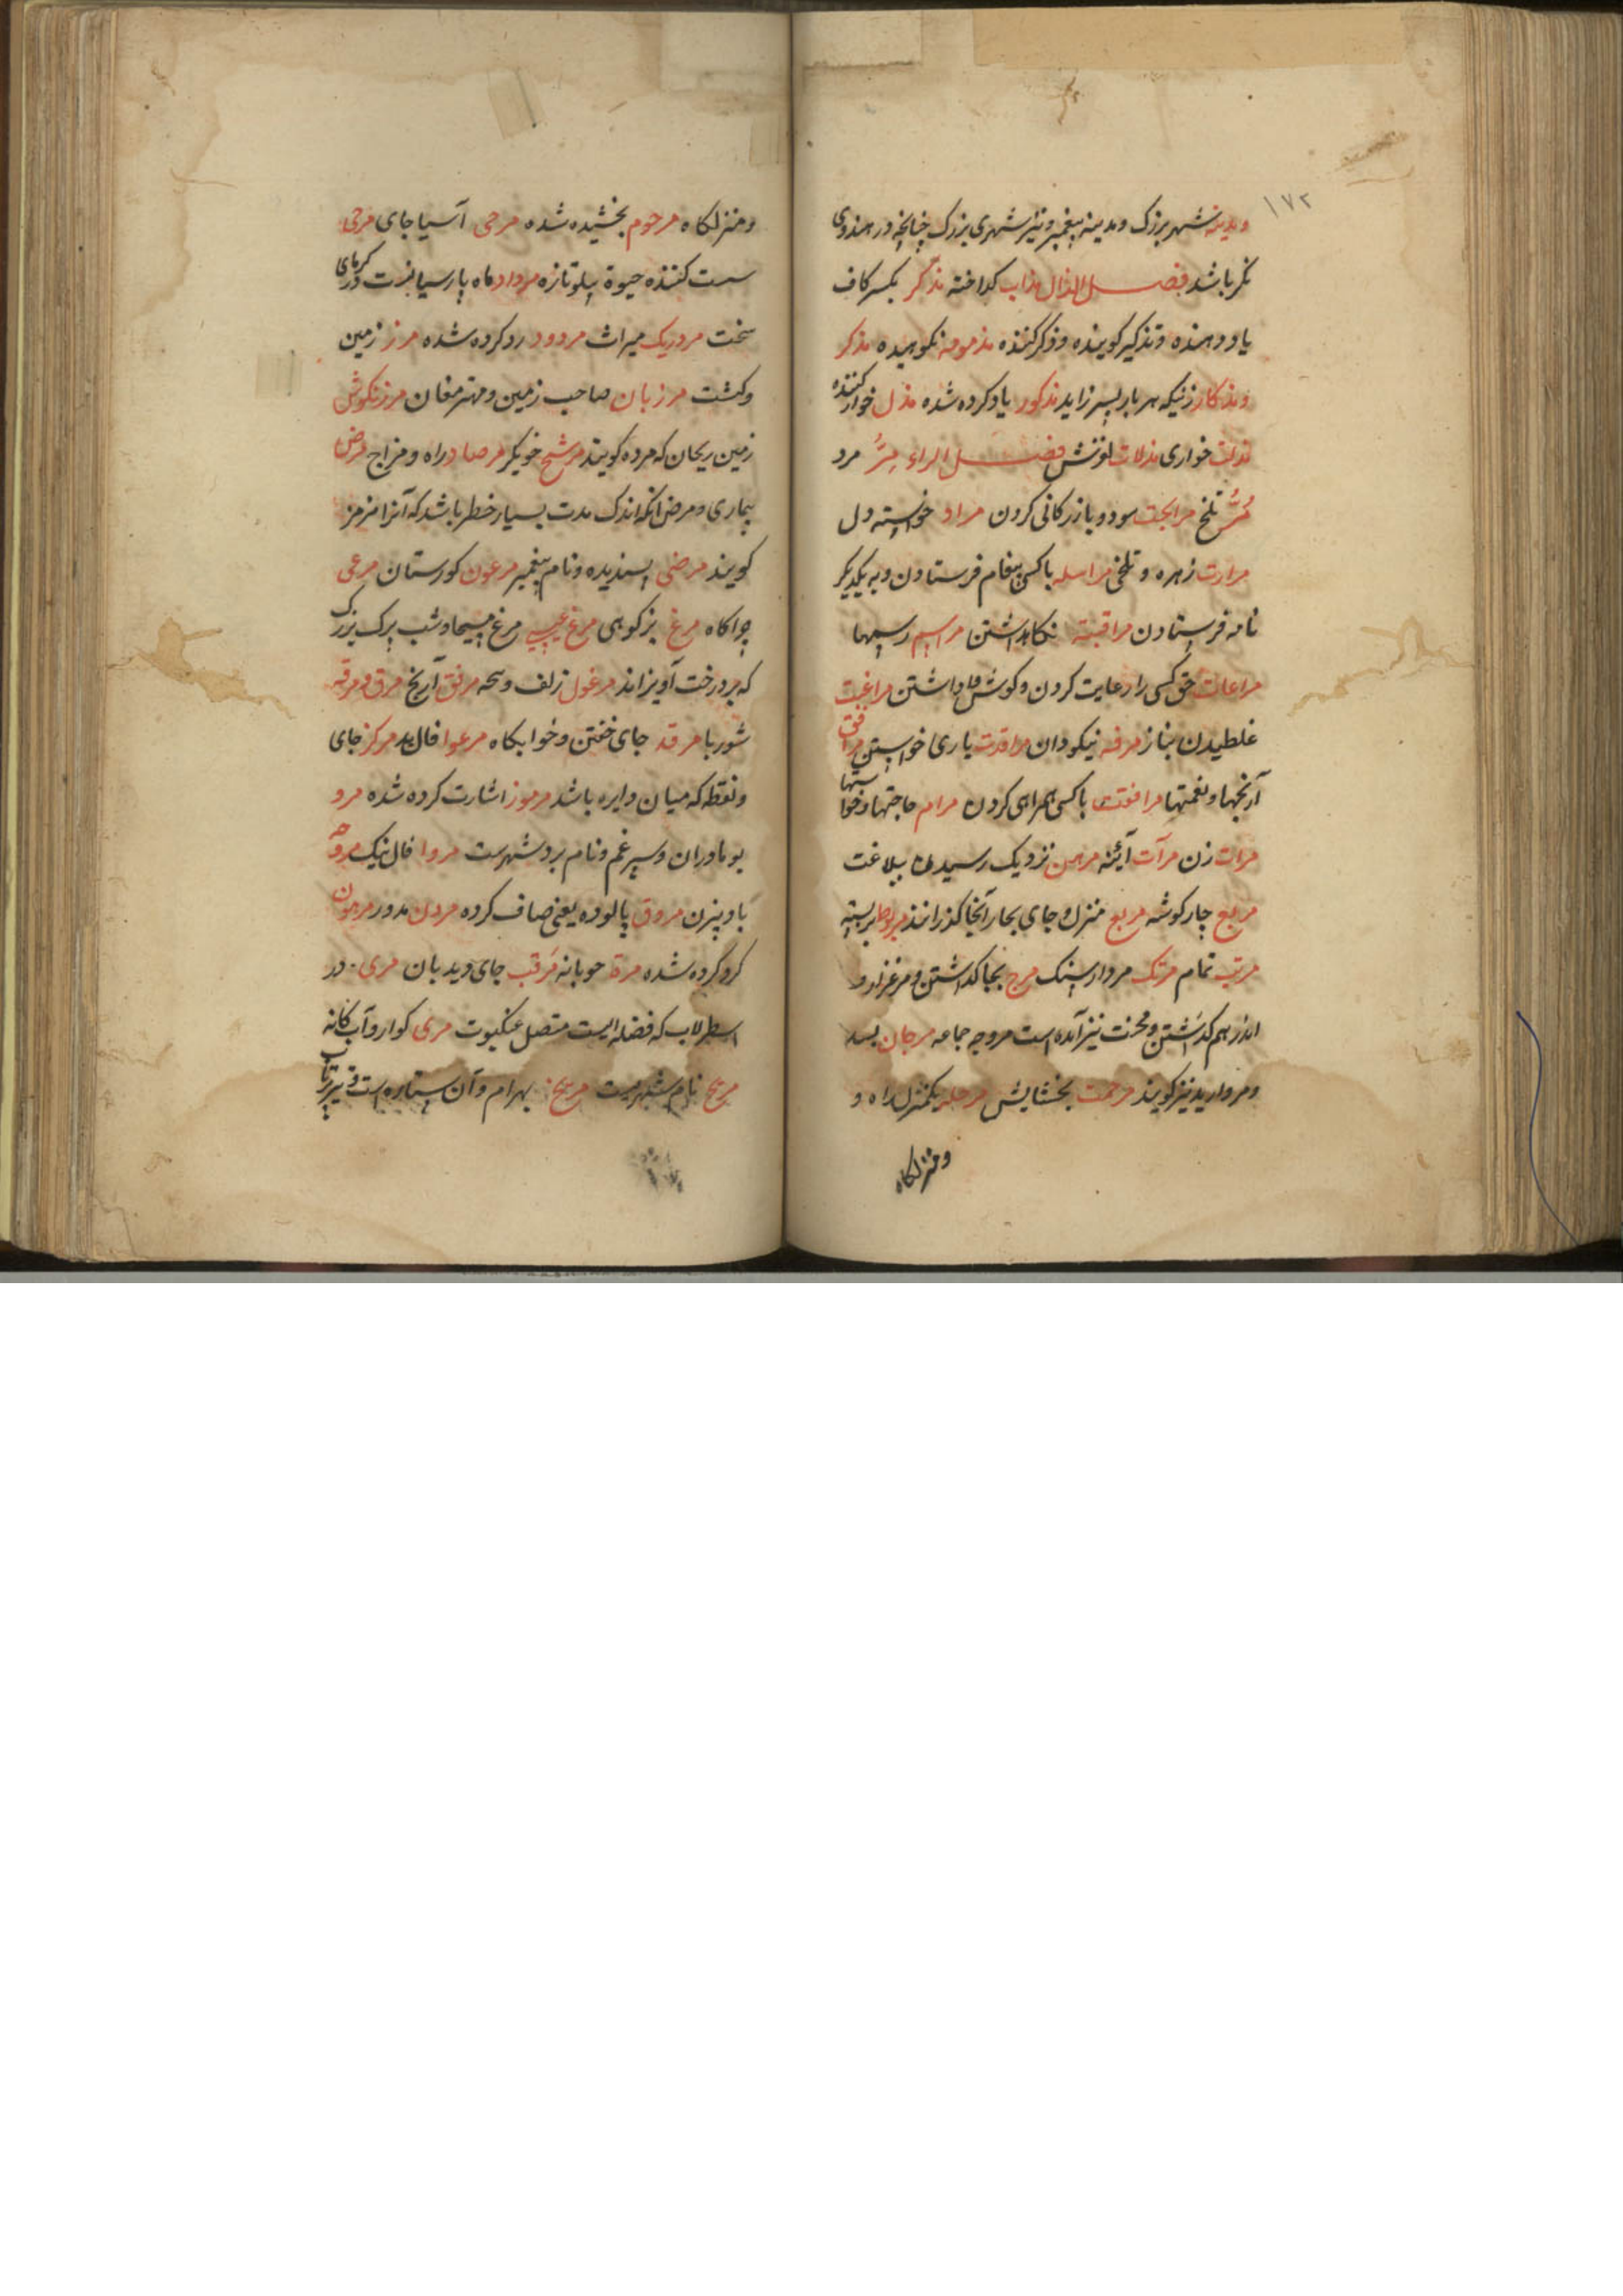 ۱۷۲
ومدینه شهر بزرک ومدینه پیغمبر ونیز شهری بزرک چنانچه در هندوی
نکر باشد فصل الذال مذاب کداخته مذکر بکسر کاف
یاد دهنده وتذکیر کوینده وذکر کننده مذمومه نکوهیده مذکر
ومذکار زنیکه هر بار پسر زاید مذکور یاد کرده شده مذل خوار کننده
مذلت خواری مذلات لغزش فصل الراء مرء مرد
مر تلخ مرابحت سود وبازرکانی کردن مراد خواسته دل
مرارت زهره وتلخی مراسله باکسی پیغام فرستادن وبه یکدیکر
نامه فرستادن مراقبته نکاهداشتن مراسیم رسمها
مراعات حق کسی را رعایت کردن وکوش فا داشتن مراغبت
غلطیدن بناز مرفه نیکو دان مراقدت یاری خواستن مرافق
آرنجها ونعمتها مرافقت باکسی همراهی کردن مرام حاجتها وخواستها
مرات زن مرآت آئینه نزدیک رسیدن ببلاغت
مربع چار کوشه مربع منزل وجای بحار آنجا کذرانند مربوط بربسته
مرتب تمام مرتک مردار سنک مرج بجا کذاشتن ومرغزار و
اندر هم کذشتن ومحنت نیز آمده است مروجه جماعه مرجان بسد
ومروارید نیز کویند مرحمت بخشایش مرحله یکمنزل راه و
ومنزلکاه
ومنزلکاه مرحوم بخشیده شده مرحی آسیا جای مرخی
سست کننده حیوة پیلو تازه مرداد ماه پارسیانست در کرمای
سخت مردریک میراث مردود رد کرده شده مرز زمین
وکشت مرزبان صاحب زمین ومهتر مغان مرزنکوش
زمین ریحان که مرده کویند مرشح خویکر مرصاد راه ومزاج مرض
بیماری ومرض آنکه اندک مدت بسیار خطر باشد که آنرا مزمز
کویند مرضی پسندیده ونام پیغمبر مرعون کورستان مرعی
چراکاه مرغ بزکوهی مرغ عیسی مرغ مسیحا وشب پرک بزرک
که بر درخت آویزاند مرغول زلف وسحه مرفق آرنج مرق ومرقه
شوربا مرقد جای خفتن وخوابکاه مرغوا فال بد مرکز جای
ونقطه که میان دایره باشد مرموز اشارت کرده شده مرو
بوماوران وسپرغم ونام بر دو شهرست مروا فال نیک مروحه
بادبیزن مروق پالوده یعنی صاف کرده مردن مدور مرهون
کرو کرده شده مرقب جای دیدبان مری در
اسطرلاب که فضله ایست متصل عنکبوت مری کوار وآب کانه
مریخ نام شهریست مریخ بهرام وآن ستاره است وتیر پرتاب